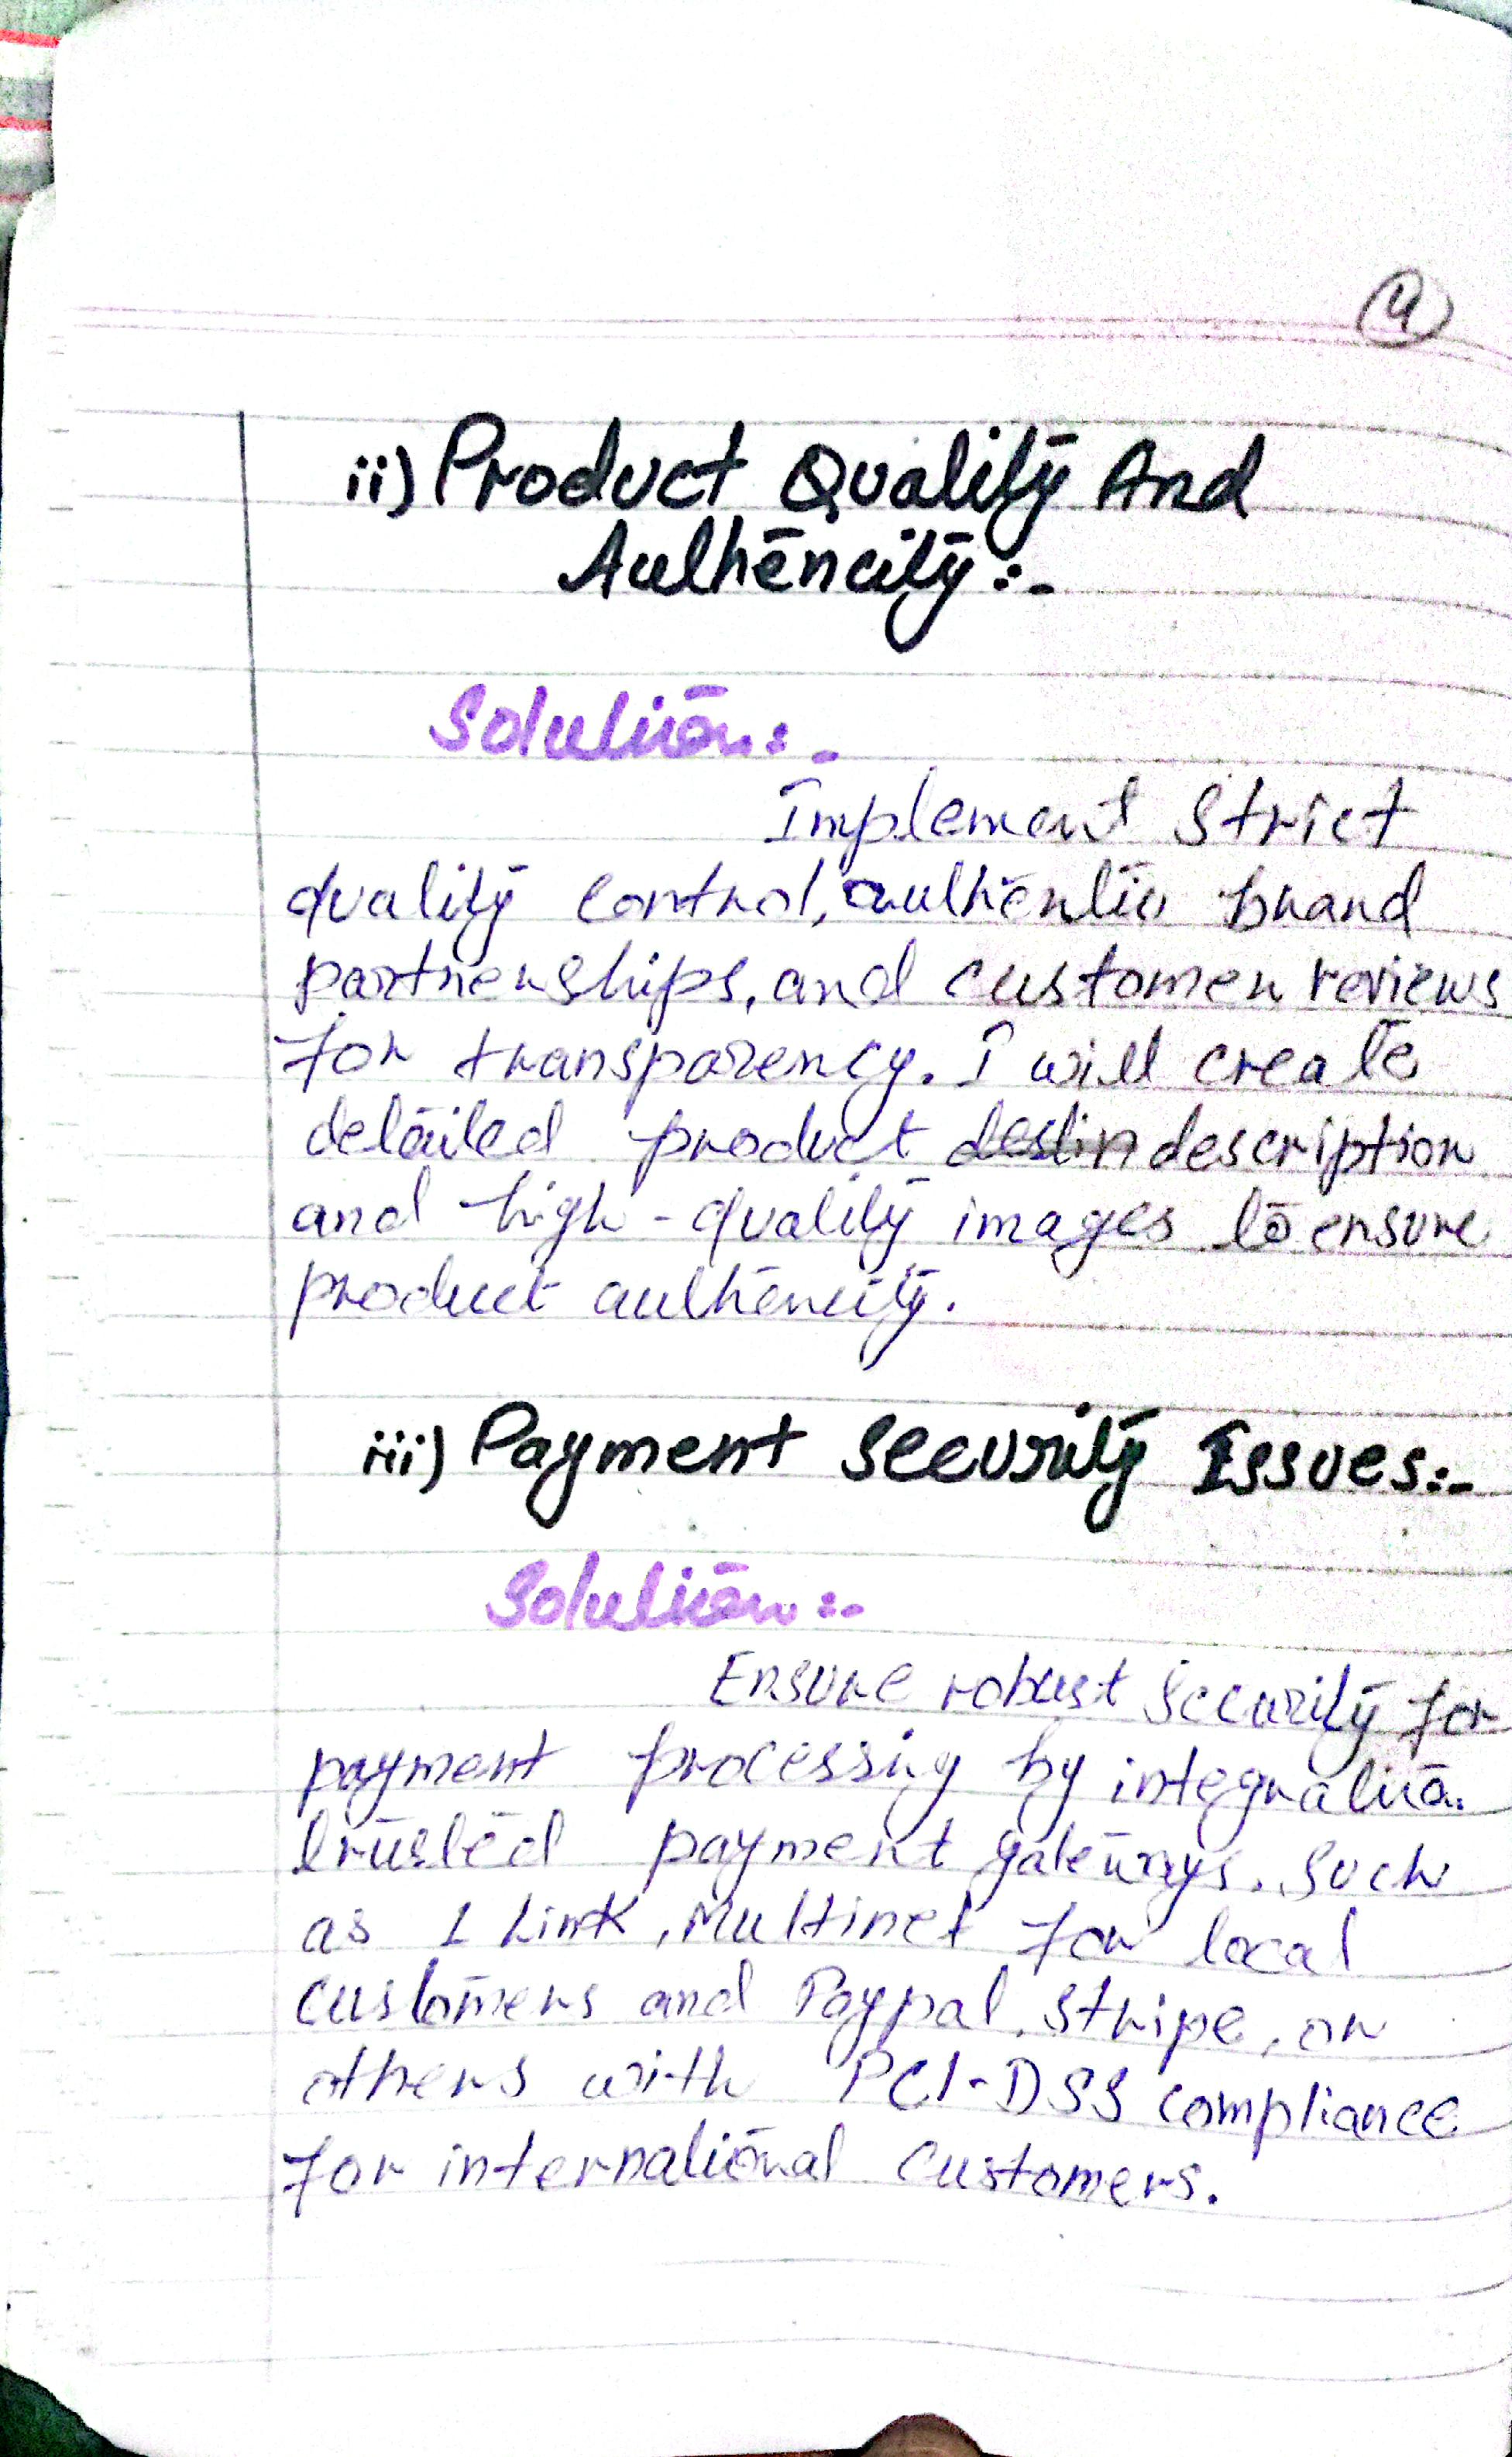 4
ii) Product Quality And
Authencity:-
Solution:-
Implement strict
quality control, authentic brand
partnerships, and customer reviews
for transparency. I will create
detailed product description
and high-quality images to ensure
product authencity.
iii) Payment Security Issues:-
Solution:-
Ensure robust security for
payment processing by
trusted payment gateways. such
as 1 Link, Multinet for local
customers and Paypal, stripe, or
others with PCI-DSS compliance
for international customers.